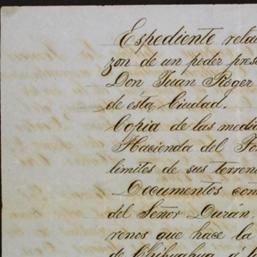 Espediente rela
zon de un poder pres
Don Juan Roger
de ésta Ciudad.
Copia de las medi
Hacienda del
limites de sus terren
Documentos con
del Señor Durán.
renos que hace la
de Chihuahua, y l